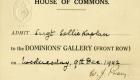 HOUSE OF COMMONS.
Admit Sergt Sollie Kaplan
to the DOMINIONS' GALLERY (FRONT ROW)
on Wednesday, 9th Dec, 1942